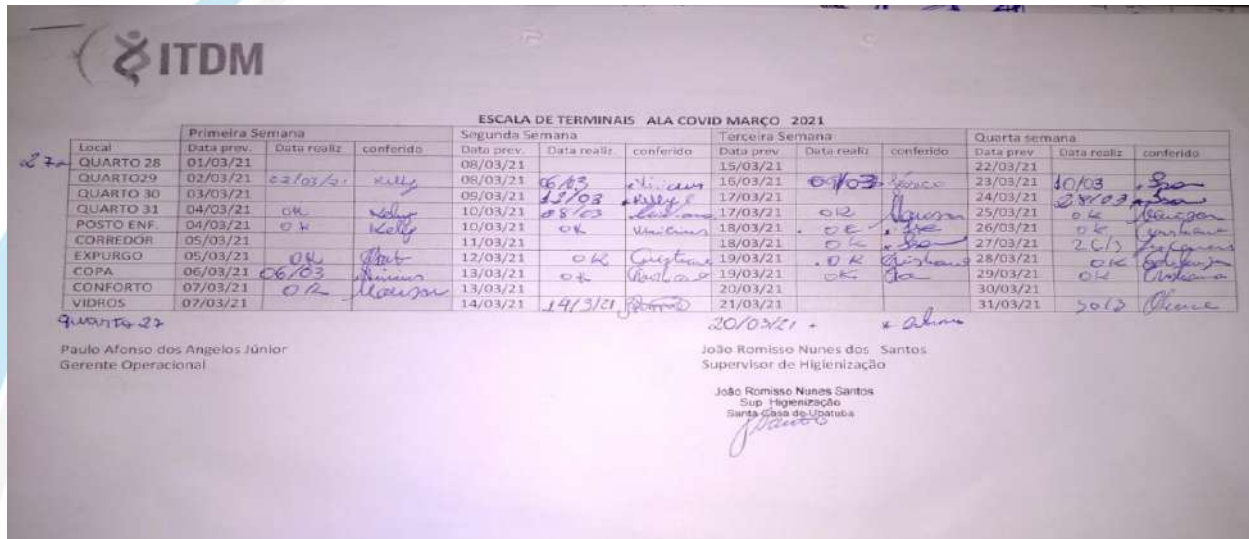 ITDM
ESCALA DE TERMINAIS ALA COVID MARÇO 2021
Primeira Semana Segunda Semana Terceira Semana Quarta semana
Local Data prev. Data realiz conferido Data prev. Data realiz conferido Data prev. Data realiz conferido Data prev Data realiz conferido
QUARTO 28 01/03/21 08/03/21 15/03/21 22/03/21
QUARTO29 02/03/21 02/03/21 Kelly 08/03/21 06/03 16/03/21 09/03 23/03/21 10/03
QUARTO 30 03/03/21 09/03/21 Kelly 17/03/21 24/03/21
QUARTO 31 04/03/21 OK Kelly 10/03/21 08/03 17/03/21 OK 25/03/21 OK
POSTO ENF. 04/03/21 OK Kelly 10/03/21 OK Vinicius 18/03/21 OK 26/03/21 OK Cristiane
CORREDOR 05/03/21 11/03/21 18/03/21 OK 27/03/21
EXPURGO 05/03/21 OK 12/03/21 OK Cristiane 19/03/21 OK Cristiane 28/03/21 OK
COPA 06/03/21 06/03 Vinicius 13/03/21 OK Cristiane 19/03/21 OK 29/03/21 OK Cristiana
CONFORTO 07/03/21 OK 13/03/21 20/03/21 30/03/21
VIDROS 07/03/21 14/03/21 14/3/21 21/03/21 31/03/21
quarto 27 20/03/21
Paulo Afonso dos Angelos Júnior João Romisso Nunes dos Santos
Gerente Operacional Supervisor de Higienização
João Romisso Nunes Santos
Sup Higienização
Santa Casa de Ubatuba